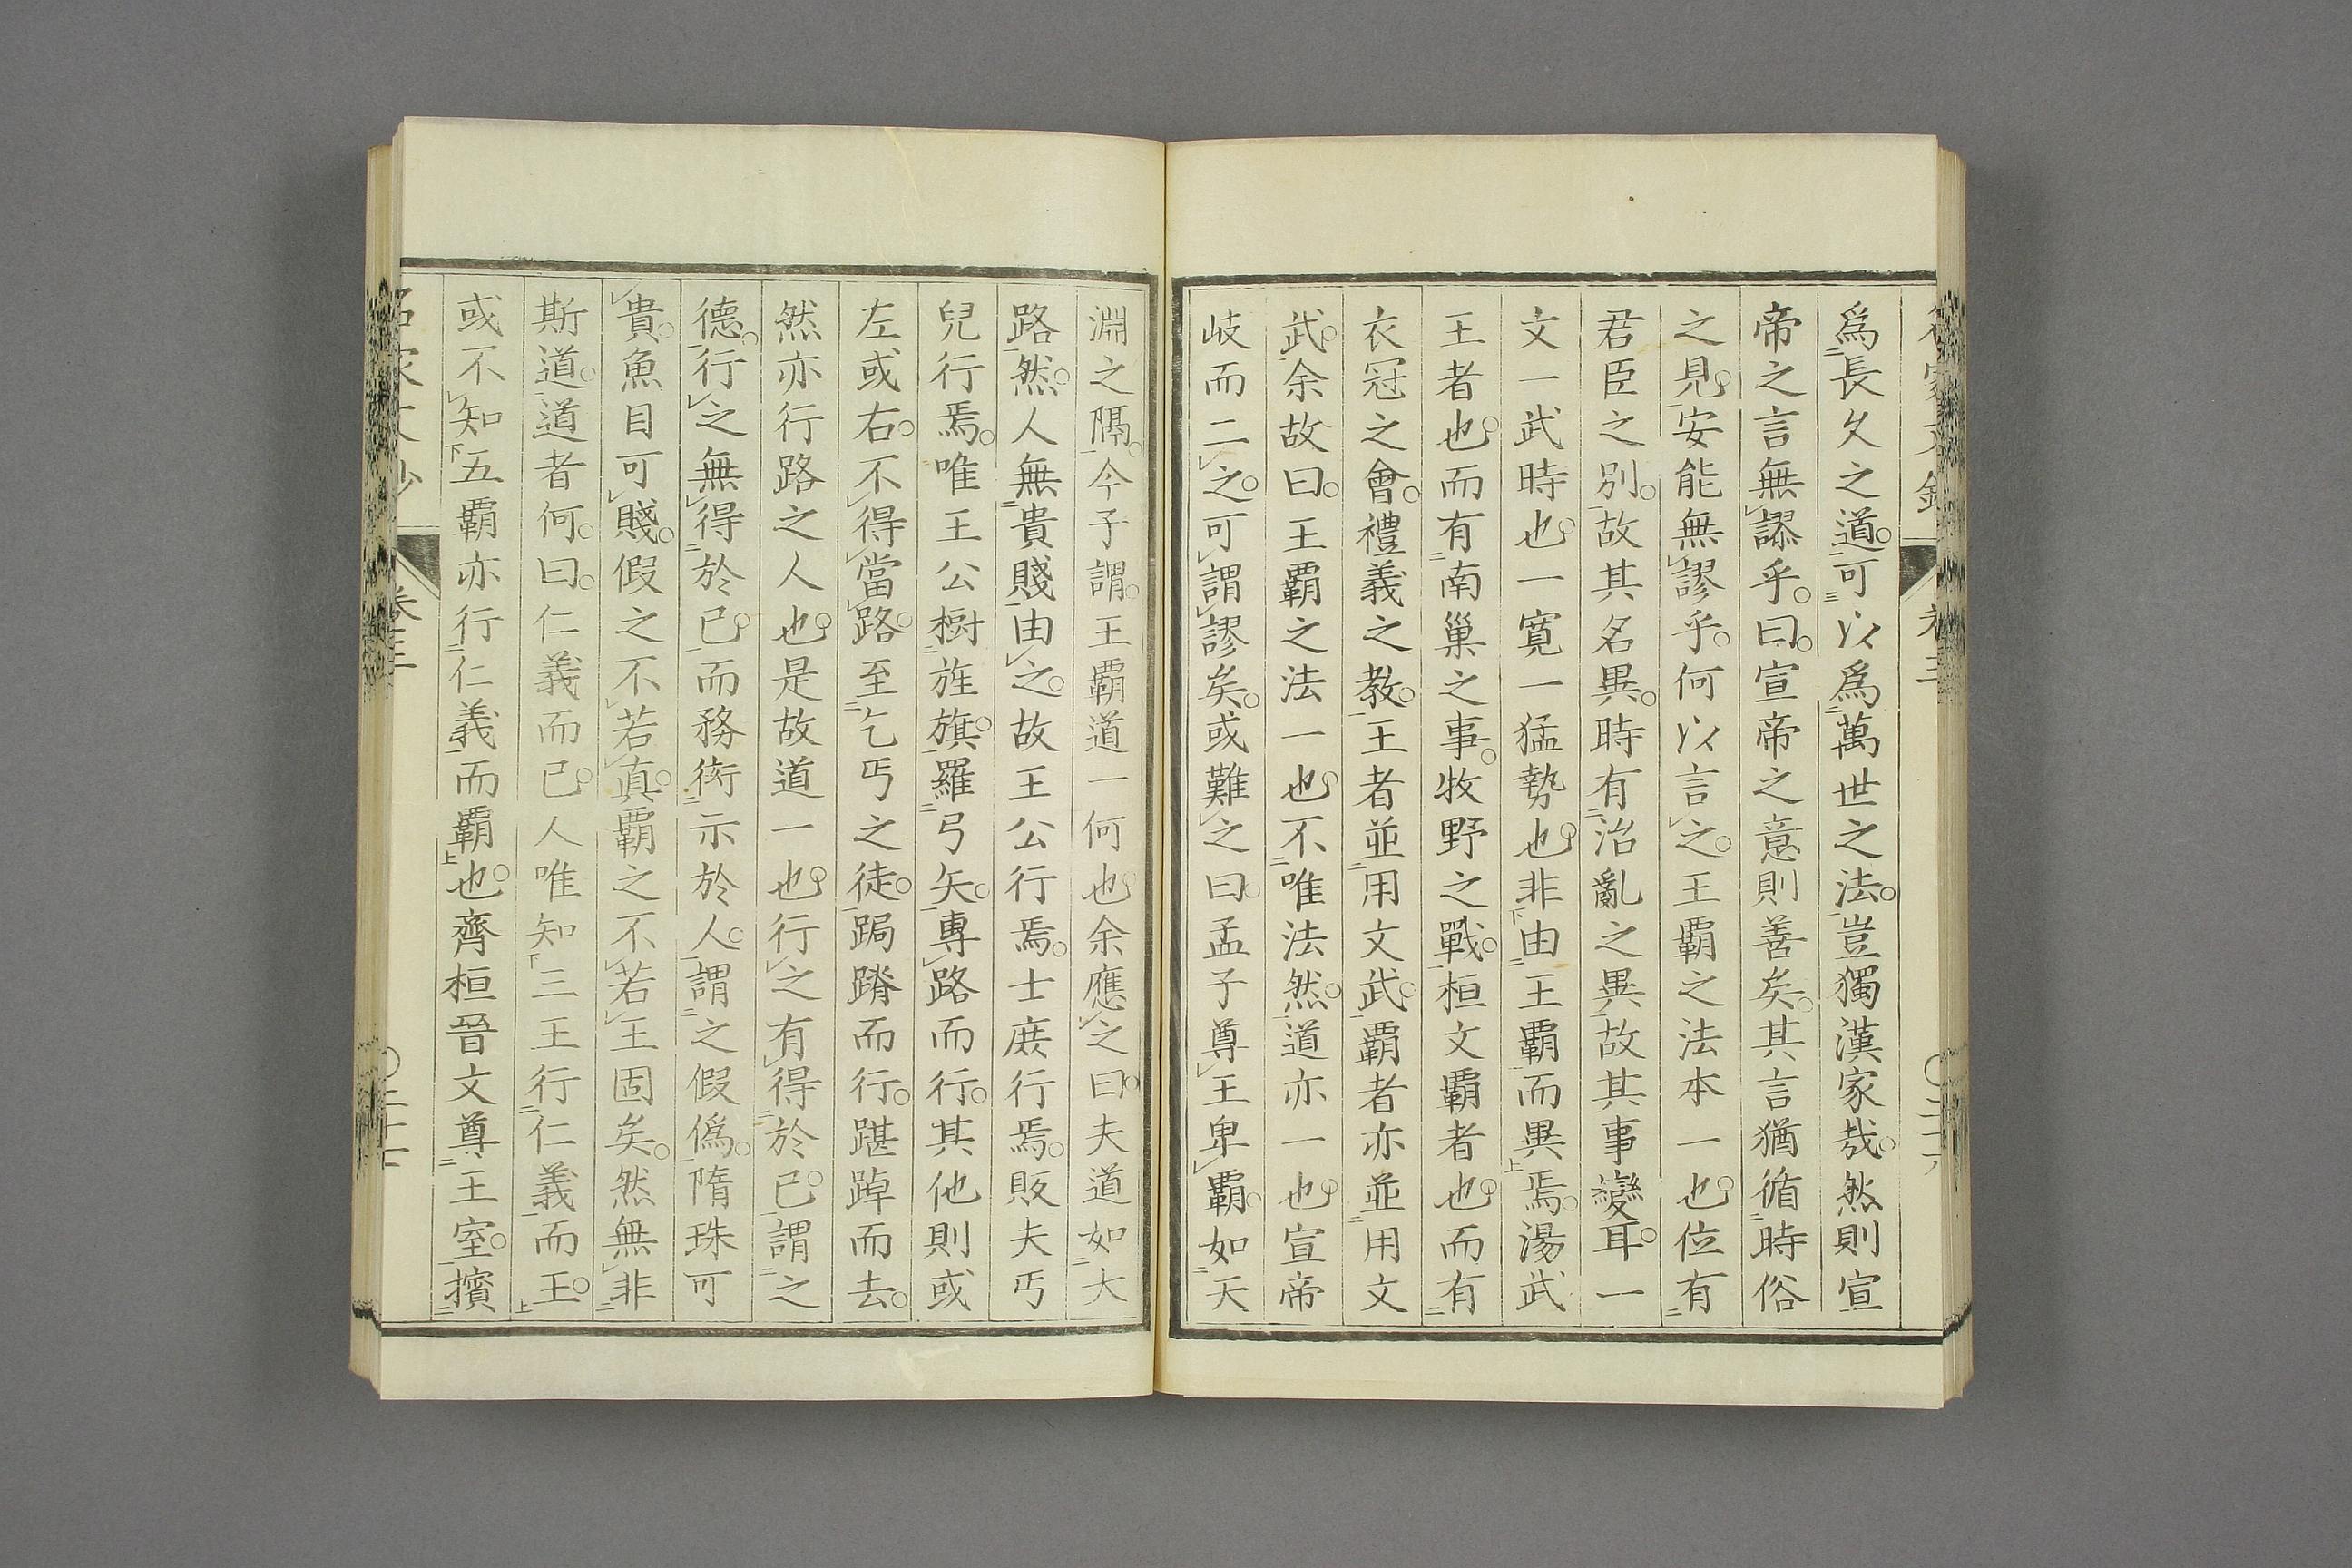 爲長久之道。可以爲萬世之法。豈獨漢家哉。然則宣
帝之言無謬乎。曰。宣帝之意則善矣。其言猶循時俗
之見。安能無謬乎。何以言之。王霸之法本一也。位有
君臣之別。故其名異。時有治亂之異。故其事變耳。一
文一武時也。一寬一猛勢也。非由王霸而異焉。湯武
王者也。而有南巢之事。牧野之戰。桓文霸者也。而有
衣冠之會。禮義之教。王者並用文武。霸者亦並用文
武。余故曰。王霸之法一也。不唯法然。道亦一也。宣帝
岐而二之。可謂謬矣。或難之曰。孟子尊王卑霸。如天
淵之隔。今子謂。王霸道一何也。余應之曰。夫道如大
路。然人無貴賤由之。故王公行焉。士庶行焉。販夫丐
兒行焉。唯王公樹旌旗。羅弓矢。專路而行。其他則或
左或右。不得當路。至乞丐之徒。跼蹐而行。踸踔而去。
然亦行路之人也。是故道一也。行之有得於己。謂之
德。行之無得於己。而務衒示於人。謂之假僞。隋珠可
貴。魚目可賤。假之不若真。霸之不若王固矣。然無非
斯道。道者何。曰。仁義而已。人唯知三王行仁義而王。
或不知五霸亦行仁義而霸也。齊桓晉文尊王室。擯
卷三